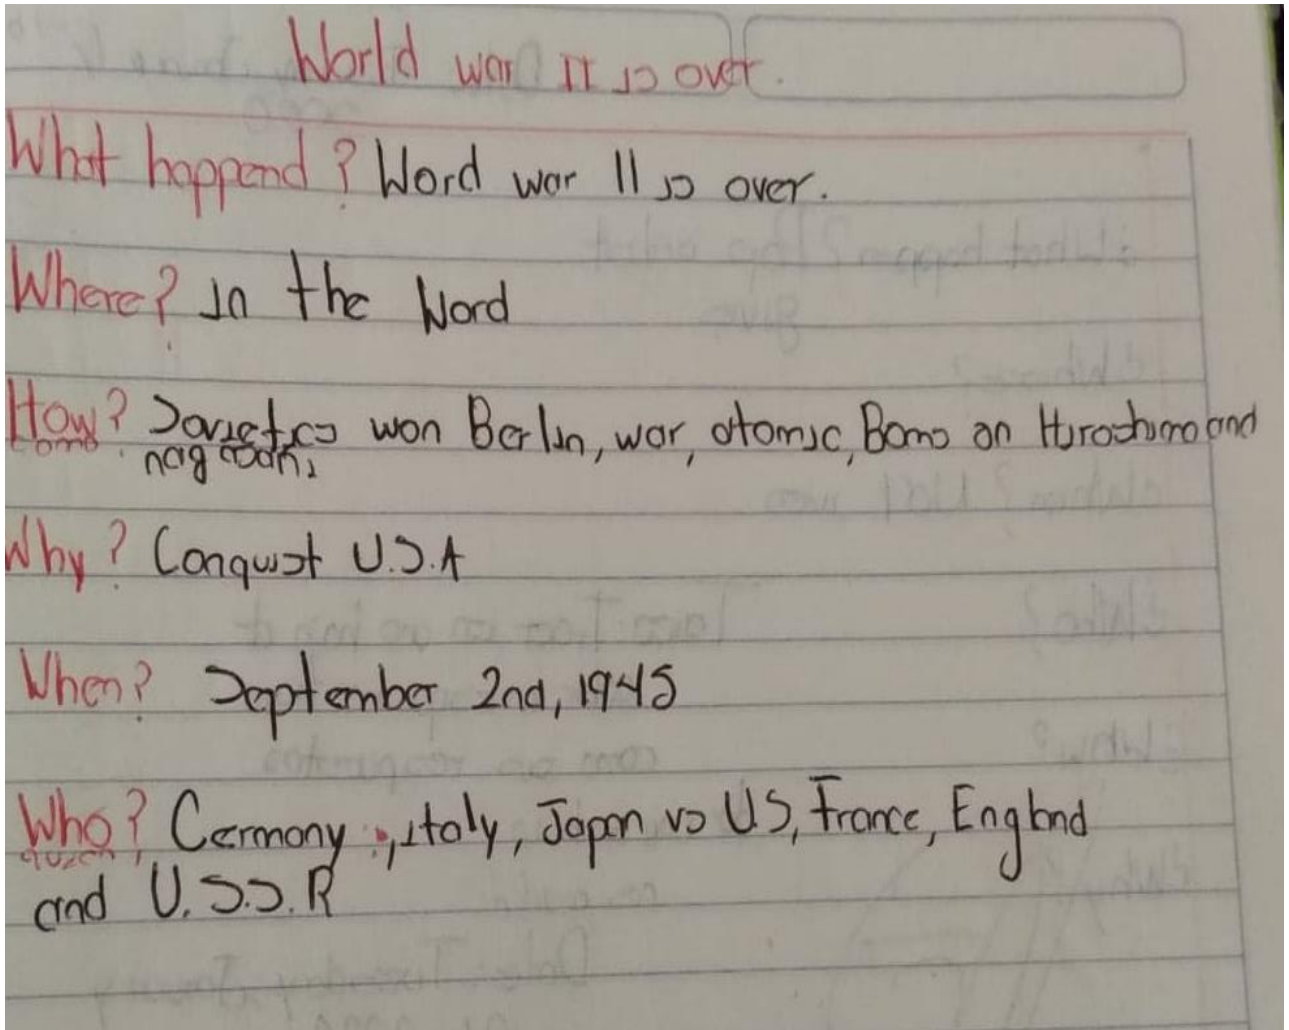 World war II is over.
What happend? Word war II is over.
Where? In the Word
How? Soviets won Berlin, war, atomic, Bomb on Hiroshima and
como nagasaki,
Why? Conquist U.S.A
When? September 2nd, 1945
Who? Cermany, italy, Japan vs US, France, England
quien
and U.S.S.R